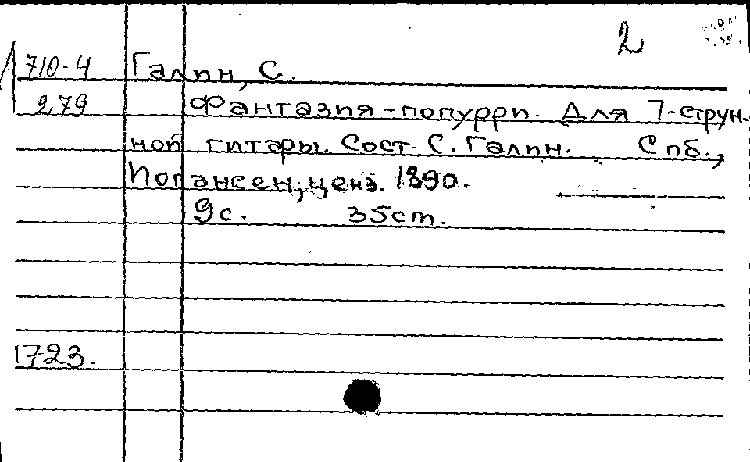 2
710-4 Галин, С.
279 Фантазия-попурри. Для 7-струн-
ной гитары. Сост. С. Галин. Спб.,
Иогансен, ценз. 1890.
9с. 35см.
1723.